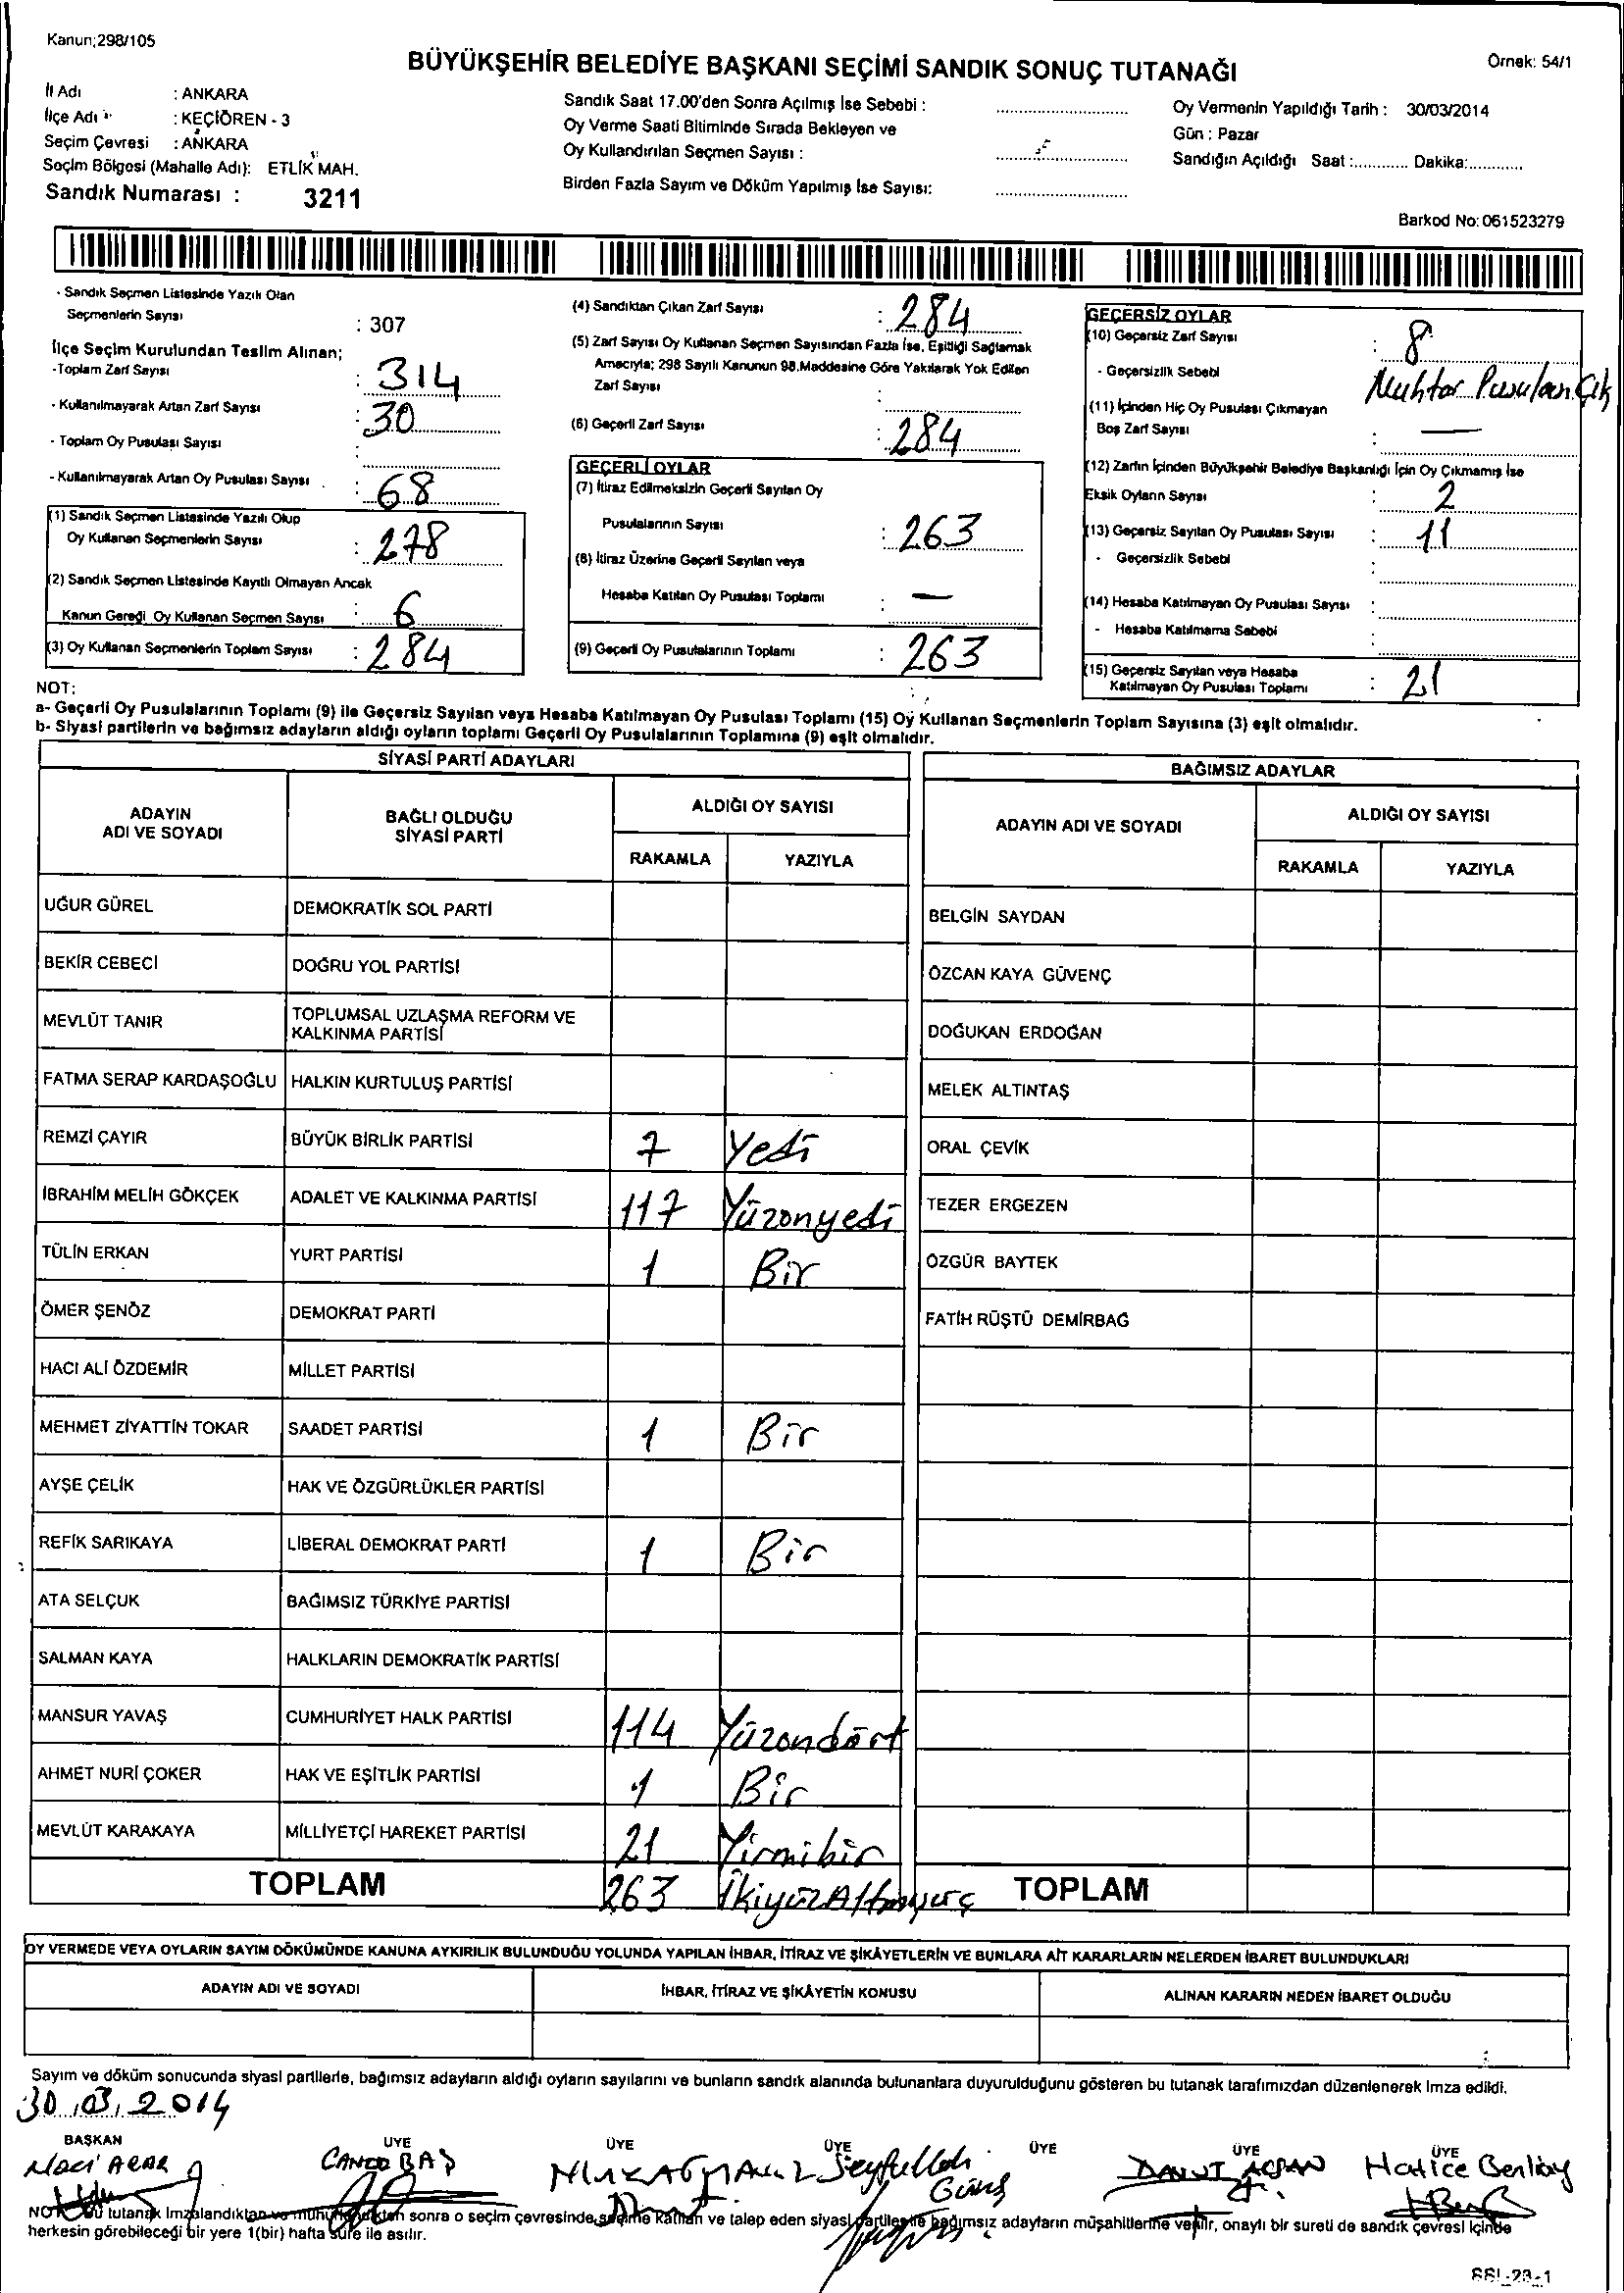 Kanun;298/105
BÜYÜKŞEHİR BELEDİYE BAŞKANI SEÇİMİ SANDIK SONUÇ TUTANAĞI
Örnek: 54/1
İl Adı : ANKARA
İlçe Adı : KEÇİÖREN - 3
Seçim Çevresi : ANKARA
Seçim Bölgesi (Mahalle Adı): ETLİK MAH.
Sandık Numarası : 3211
Sandık Saat 17.00'den Sonra Açılmış İse Sebebi :
Oy Verme Saati Bitiminde Sırada Bekleyen ve
Oy Kullandırılan Seçmen Sayısı :
Birden Fazla Sayım ve Döküm Yapılmış İse Sayısı:
Oy Vermenin Yapıldığı Tarih : 30/03/2014
Gün : Pazar
Sandığın Açıldığı Saat :........... Dakika:...........
Barkod No: 061523279
- Sandık Seçmen Listesinde Yazılı Olan
Seçmenlerin Sayısı : 307
İlçe Seçim Kurulundan Teslim Alınan;
-Toplam Zarf Sayısı : 314
- Kullanılmayarak Artan Zarf Sayısı : 30
- Toplam Oy Pusulası Sayısı :
- Kullanılmayarak Artan Oy Pusulası Sayısı : 68
(1) Sandık Seçmen Listesinde Yazılı Olup
Oy Kullanan Seçmenlerin Sayısı : 278
(2) Sandık Seçmen Listesinde Kayıtlı Olmayan Ancak
Kanun Gereği Oy Kullanan Seçmen Sayısı : 6
(3) Oy Kullanan Seçmenlerin Toplam Sayısı : 284
(4) Sandıktan Çıkan Zarf Sayısı : 284
(5) Zarf Sayısı Oy Kullanan Seçmen Sayısından Fazla İse, Eşitliği Sağlamak
Amacıyla; 298 Sayılı Kanunun 98.Maddesine Göre Yakılarak Yok Edilen
Zarf Sayısı :
(6) Geçerli Zarf Sayısı : 284
GEÇERLİ OYLAR
(7) İtiraz Edilmeksizin Geçerli Sayılan Oy
Pusulalarının Sayısı : 263
(8) İtiraz Üzerine Geçerli Sayılan veya
Hesaba Katılan Oy Pusulası Toplamı : —
(9) Geçerli Oy Pusulalarının Toplamı : 263
GEÇERSİZ OYLAR
(10) Geçersiz Zarf Sayısı : 8
- Geçersizlik Sebebi : Muhtar Pusuları Çık
(11) İçinden Hiç Oy Pusulası Çıkmayan
Boş Zarf Sayısı : —
(12) Zarfın İçinden Büyükşehir Belediye Başkanlığı İçin Oy Çıkmamış İse
Eksik Oyların Sayısı : 2
(13) Geçersiz Sayılan Oy Pusulası Sayısı : 11
- Geçersizlik Sebebi :
(14) Hesaba Katılmayan Oy Pusulası Sayısı :
- Hesaba Katılmama Sebebi :
(15) Geçersiz Sayılan veya Hesaba
Katılmayan Oy Pusulası Toplamı : 21
NOT:
a- Geçerli Oy Pusulalarının Toplamı (9) ile Geçersiz Sayılan veya Hesaba Katılmayan Oy Pusulası Toplamı (15) Oy Kullanan Seçmenlerin Toplam Sayısına (3) eşit olmalıdır.
b- Siyasi partilerin ve bağımsız adayların aldığı oyların toplamı Geçerli Oy Pusulalarının Toplamına (9) eşit olmalıdır.
SİYASİ PARTİ ADAYLARI
ADAYIN ADI VE SOYADI BAĞLI OLDUĞU SİYASİ PARTİ ALDIĞI OY SAYISI
RAKAMLA YAZIYLA
UĞUR GÜREL DEMOKRATİK SOL PARTİ
BEKİR CEBECİ DOĞRU YOL PARTİSİ
MEVLÜT TANIR TOPLUMSAL UZLAŞMA REFORM VE KALKINMA PARTİSİ
FATMA SERAP KARDAŞOĞLU HALKIN KURTULUŞ PARTİSİ
REMZİ ÇAYIR BÜYÜK BİRLİK PARTİSİ 7 Yedi
İBRAHİM MELİH GÖKÇEK ADALET VE KALKINMA PARTİSİ 117 Yüzonyedi
TÜLİN ERKAN YURT PARTİSİ 1 Bir
ÖMER ŞENÖZ DEMOKRAT PARTİ
HACI ALİ ÖZDEMİR MİLLET PARTİSİ
MEHMET ZİYATTİN TOKAR SAADET PARTİSİ 1 Bir
AYŞE ÇELİK HAK VE ÖZGÜRLÜKLER PARTİSİ
REFİK SARIKAYA LİBERAL DEMOKRAT PARTİ 1 Bir
ATA SELÇUK BAĞIMSIZ TÜRKİYE PARTİSİ
SALMAN KAYA HALKLARIN DEMOKRATİK PARTİSİ
MANSUR YAVAŞ CUMHURİYET HALK PARTİSİ 114 Yüzondört
AHMET NURİ ÇOKER HAK VE EŞİTLİK PARTİSİ 1 Bir
MEVLÜT KARAKAYA MİLLİYETÇİ HAREKET PARTİSİ 21 Yirmibir
TOPLAM 263 İkiyüzAltmışüç
BAĞIMSIZ ADAYLAR
ADAYIN ADI VE SOYADI ALDIĞI OY SAYISI
RAKAMLA YAZIYLA
BELGİN SAYDAN
ÖZCAN KAYA GÜVENÇ
DOĞUKAN ERDOĞAN
MELEK ALTINTAŞ
ORAL ÇEVİK
TEZER ERGEZEN
ÖZGÜR BAYTEK
FATİH RÜŞTÜ DEMİRBAĞ
TOPLAM
OY VERMEDE VEYA OYLARIN SAYIM DÖKÜMÜNDE KANUNA AYKIRILIK BULUNDUĞU YOLUNDA YAPILAN İHBAR, İTİRAZ VE ŞİKÂYETLERİN VE BUNLARA AİT KARARLARIN NELERDEN İBARET BULUNDUKLARI
ADAYIN ADI VE SOYADI İHBAR, İTİRAZ VE ŞİKÂYETİN KONUSU ALINAN KARARIN NEDEN İBARET OLDUĞU
Sayım ve döküm sonucunda siyasi partilerle, bağımsız adayların aldığı oyların sayılarını ve bunların sandık alanında bulunanlara duyurulduğunu gösteren bu tutanak tarafımızdan düzenlenerek imza edildi.
30.03.2014
BAŞKAN ÜYE ÜYE ÜYE ÜYE ÜYE ÜYE
Naci ACAR CANER BAŞ Seyfullah Güneş Hatice Benlibay
NOT: Bu tutanak İmzalandıktan ve mühürlendikten sonra o seçim çevresinde, seçime katılan ve talep eden siyasi partilerle bağımsız adayların müşahitlerine verilir, onaylı bir sureti de sandık çevresi içinde
herkesin görebileceği bir yere 1(bir) hafta süre ile asılır.